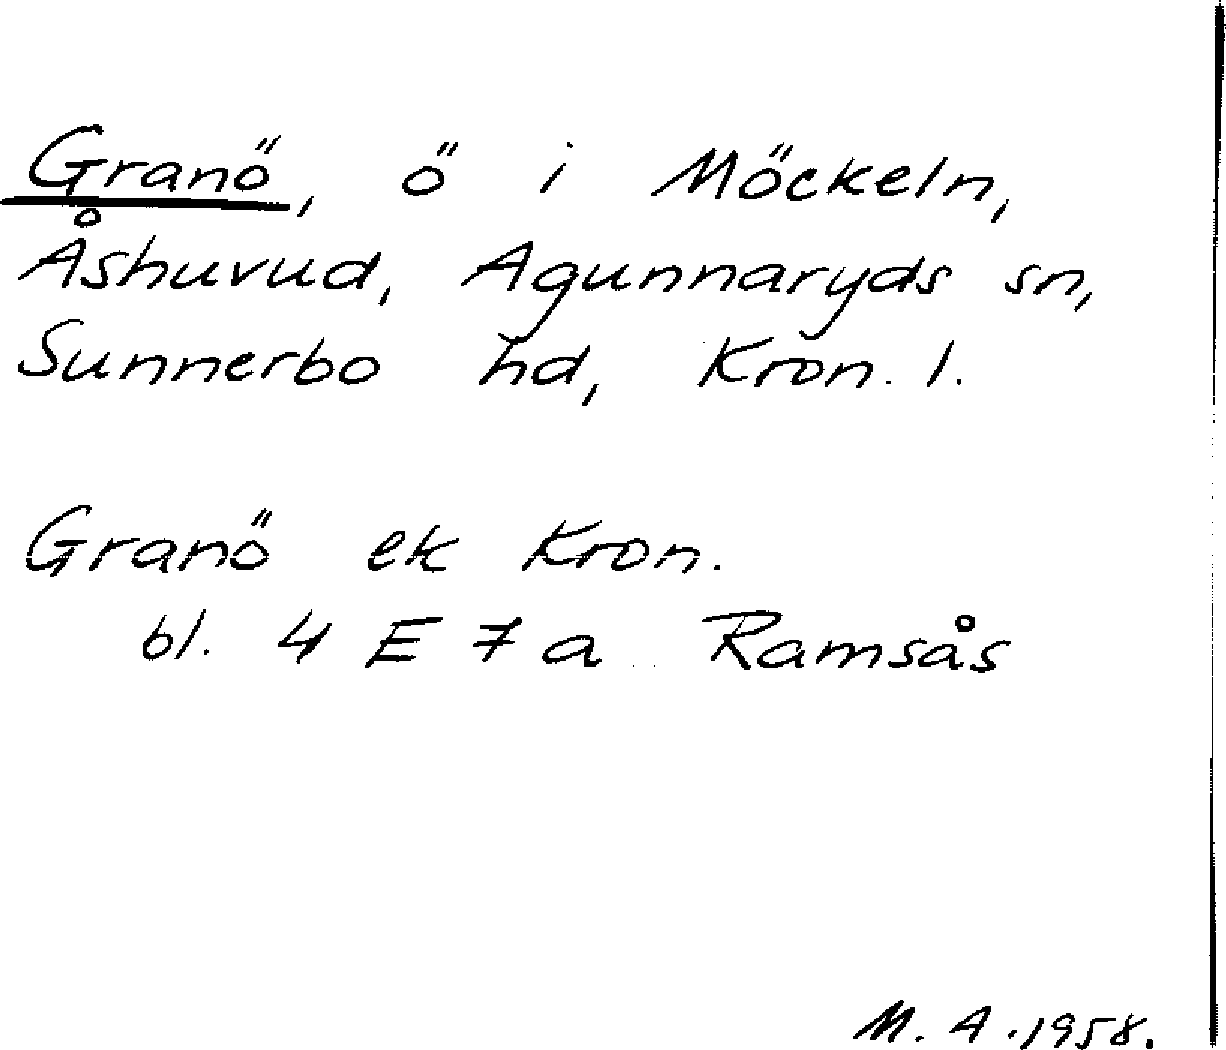 Granö, ö i Möckeln,
Åshuvud, Agunnaryds sn,
Sunnerbo hd, Kron. l.
Granö ek Kron.
bl. 4 E 7 a Ramsås
M. A. 1958.